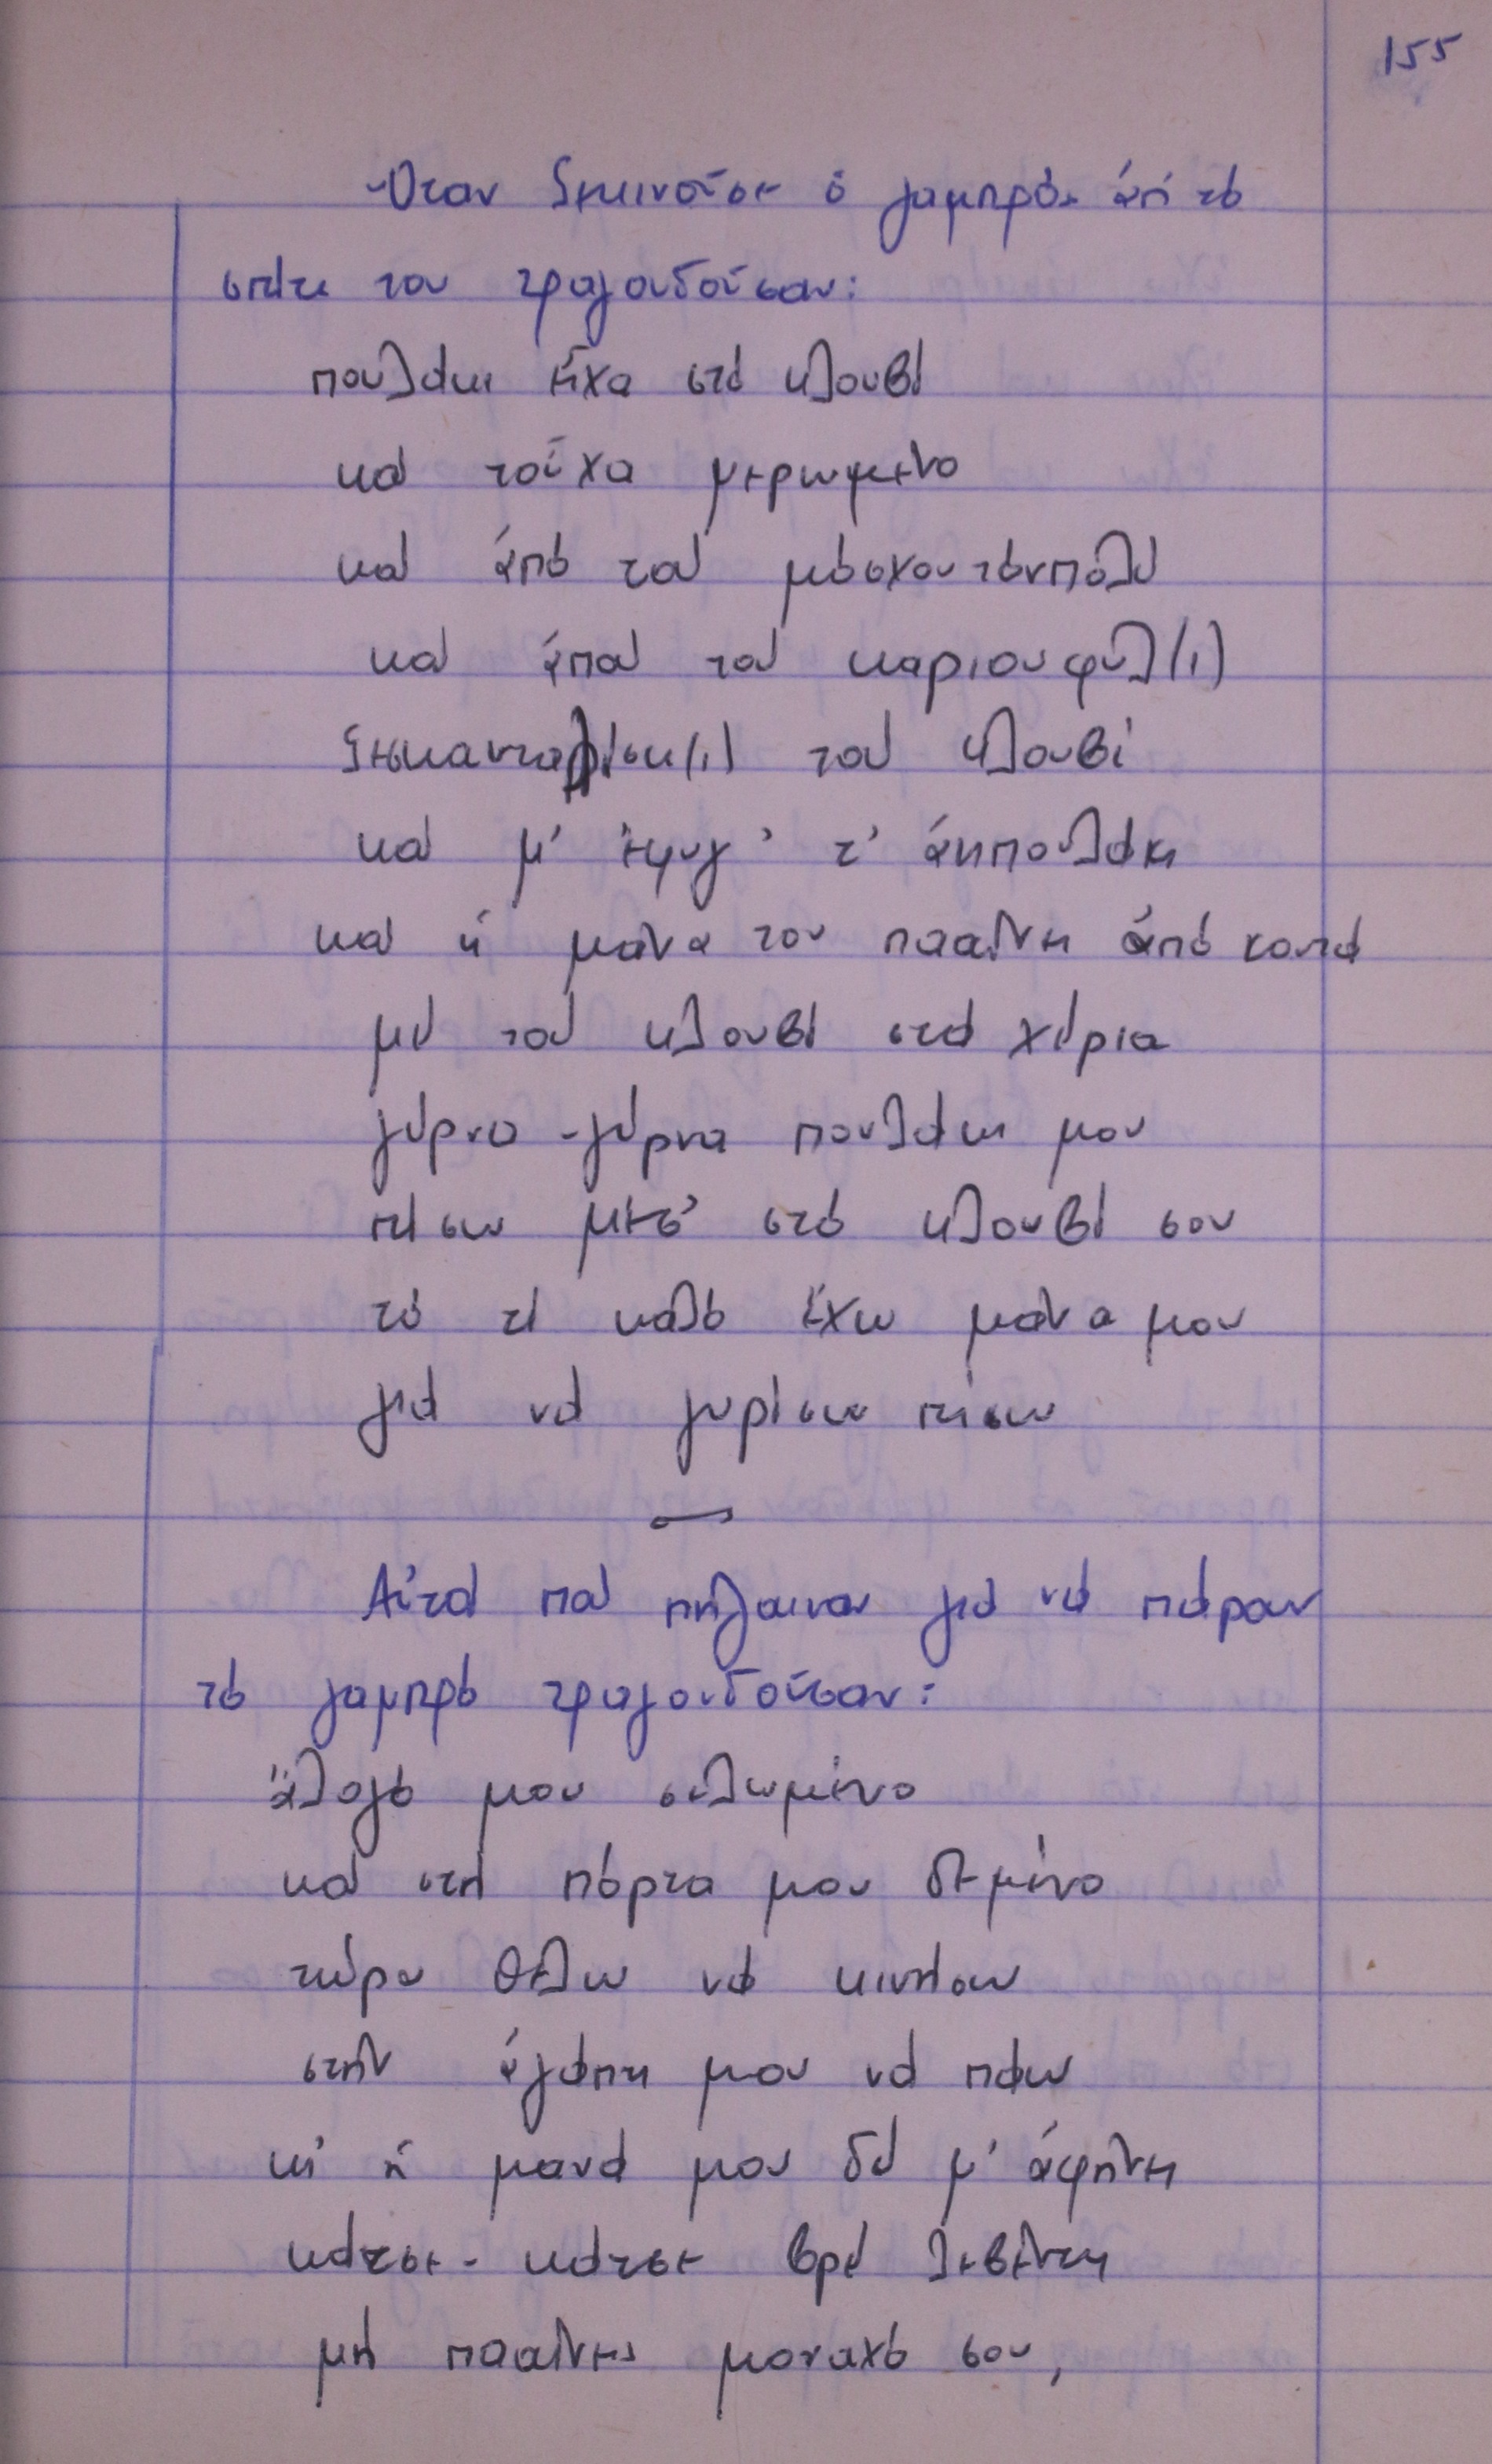 155
Ὅταν ξεκινοῦσε ὁ γαμπρός ἀπ' τό
σπίτι του τραγουδοῦσαν:
πουλάκι εἶχα στό κλουβί
καί τοὖχα μερωμένο
καί ἀπό τού μόσχου τόν πολύ
καί ἀπού τού καριουφύλ(ι)
ξεσκανταλίσκ(ι) τού κλουβί
καί μ' ἔφυγ' τ' ἀηπουλάκι
καί ἡ μάνα του πααίνει ἀπό κοντά
μέ τού κλουβί στά χέρια
γύρνα - γύρνα πουλάκι μου
πίσω μέσ' στό κλουβί σου
τό τί καλό ἔχω μάνα μου
γιά νά γυρίσω πίσω
Αὐτοί πού πήγαιναν γιά νά πάρουν
τό γαμπρό τραγουδοῦσαν:
ἄλογό μου σελωμένο
καί στή πόρτα μου δεμένο
τώρα θέλω νά κινήσω
στήν ἀγάπη μου νά πάω
κι' ἡ μανά μου δέ μ' ἀφήνει
κάτσε - κάτσε βρέ λεβέντη
μή πααίνεις μοναχό σου,